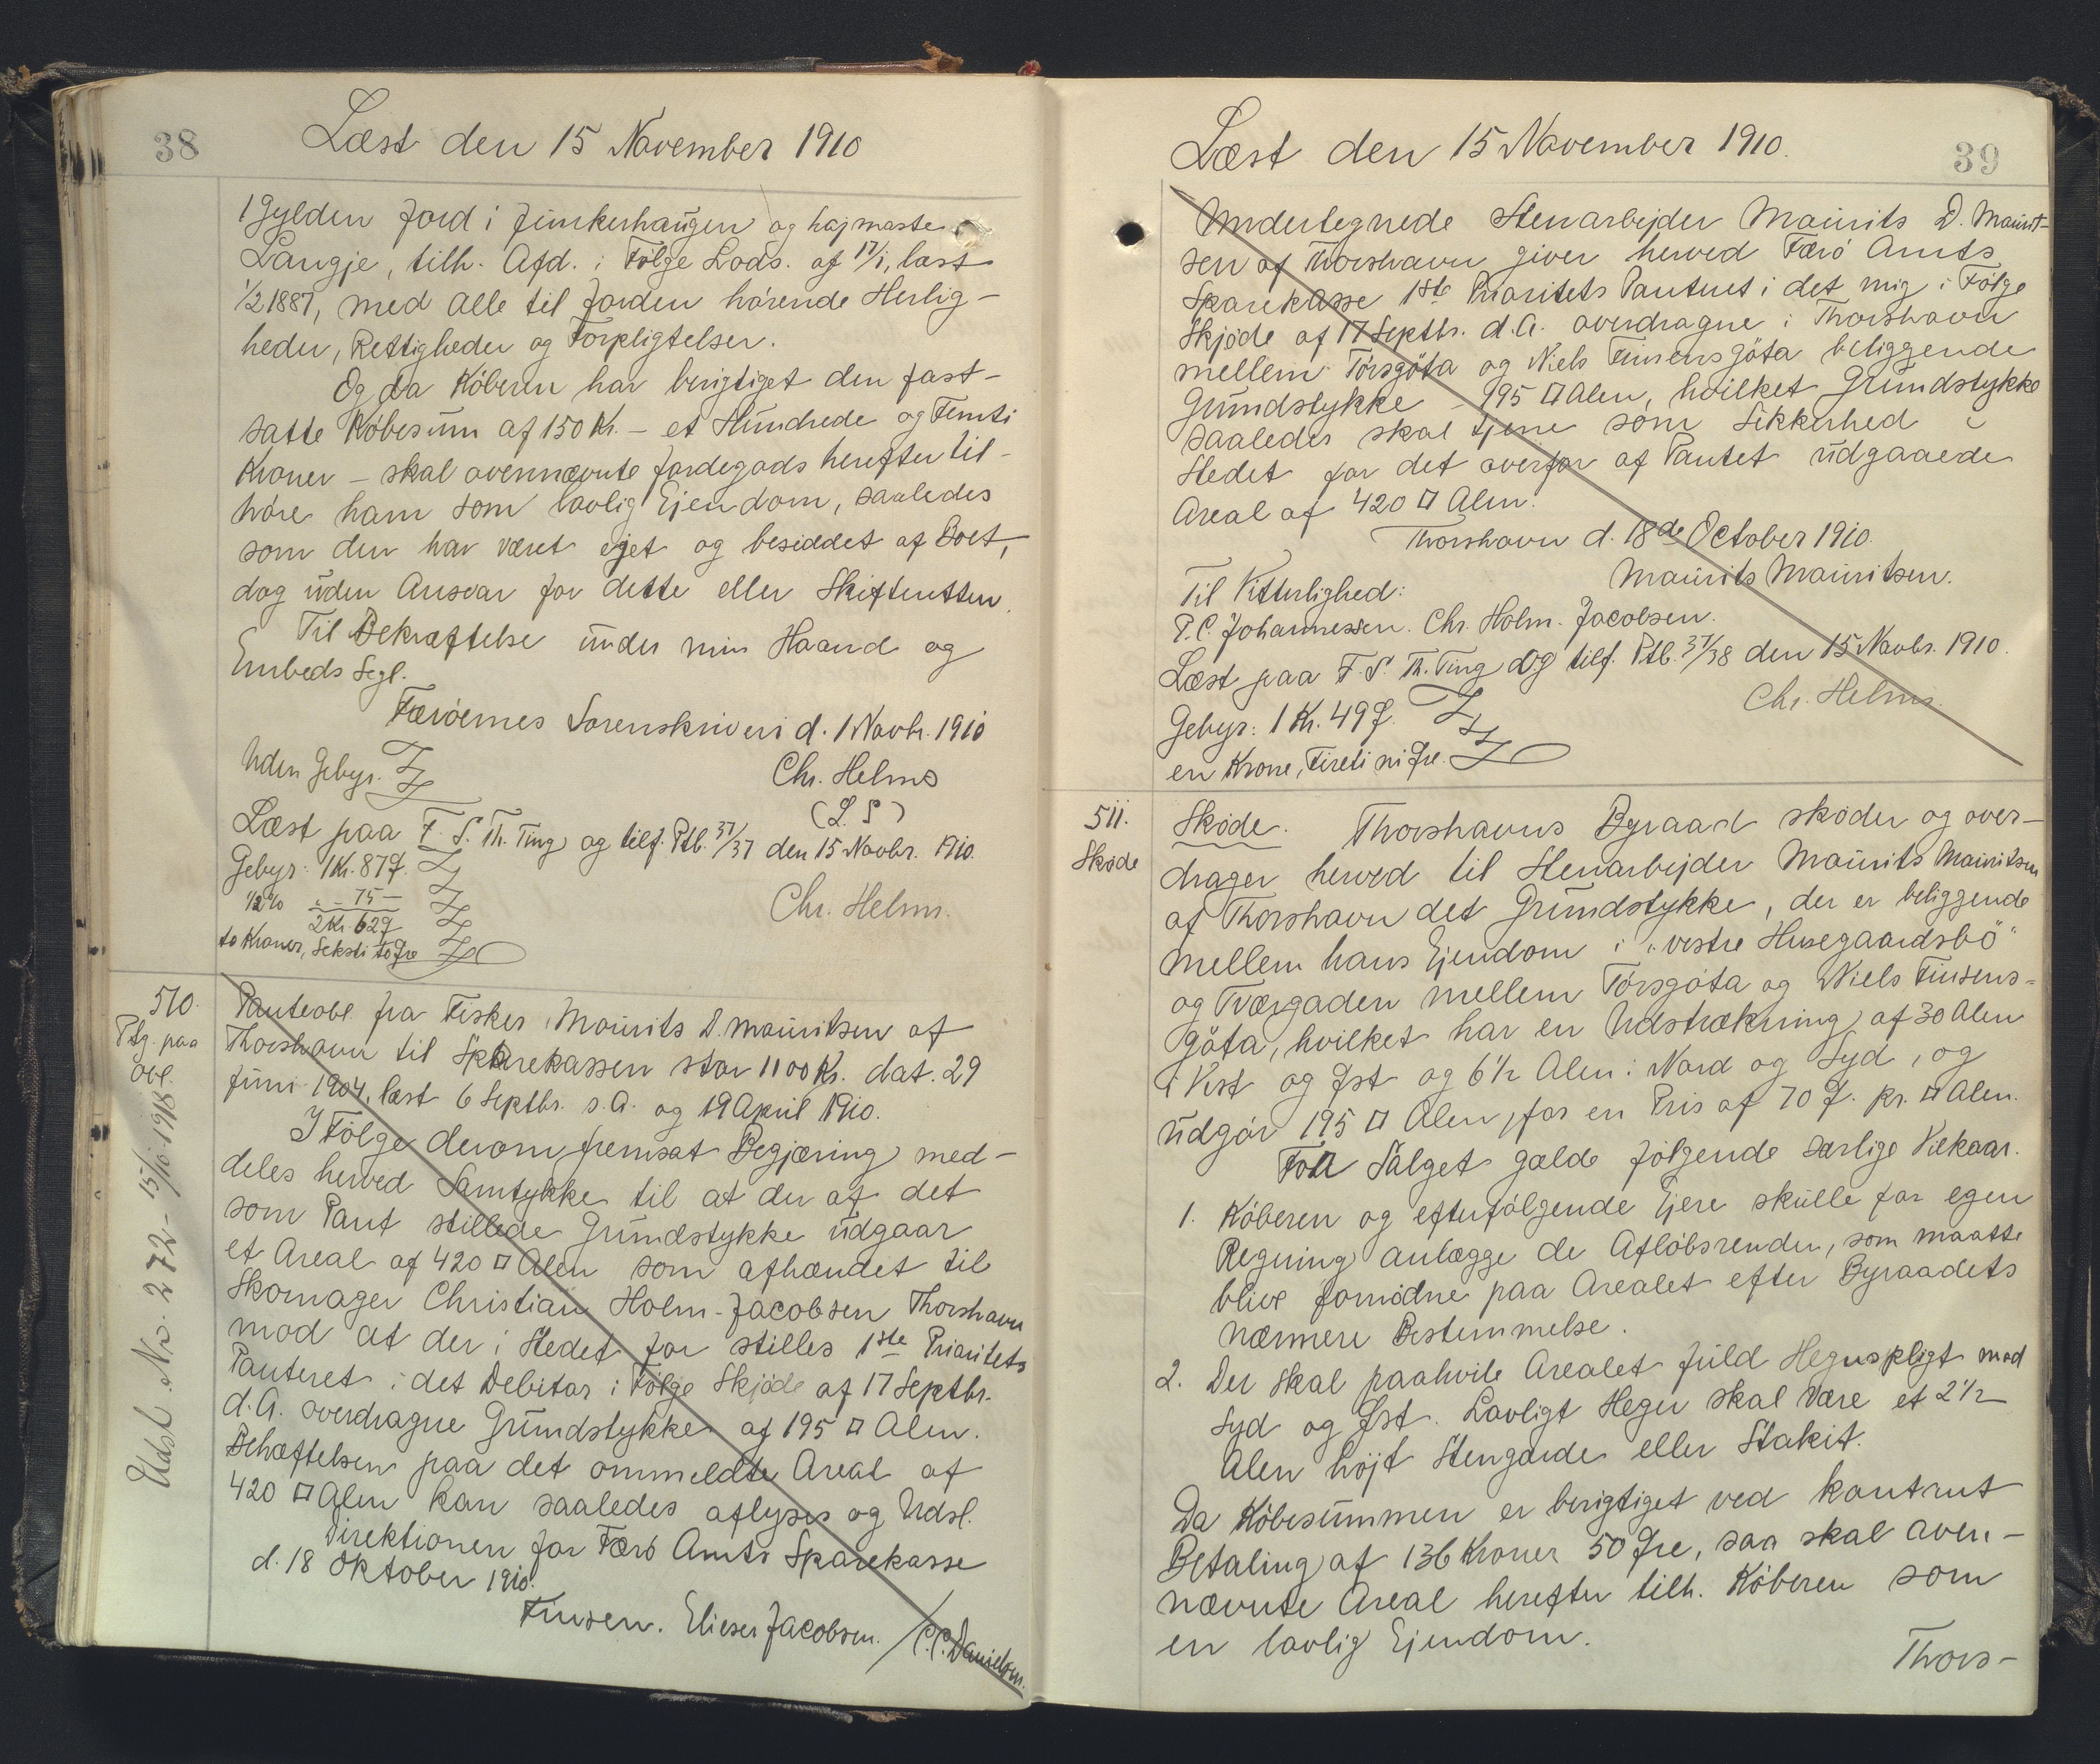 38
Læst den 15 November 1910
1 Gylden Jord i Junkerhaugen og hajmaste
Langje, tilh. Afd. i Følge Lods. af 17/1, læst
1/2 1887, med alle til Jorden hørende Herlig-
heder, Rettigheder og Forpligtelser.
Og da Køberen har berigtiget den fast-
satte Købesum af 150 Kr. - et Hundrede og Femti
Kroner - skal ovennævnte Jordegods herefter til-
høre ham som lovlig Ejendom, saaledes
som den har været ejet og besiddet af Boet,
dog uden Ansvar for dette eller Skifteretten.
Til Bekræftelse under min Haand og
Embeds Segl.
Færøernes Sorenskriveri d. 1 Novbr. 1910
Uden Gebyr.
Chr. Helms
(L.S)
Læst paa F. S. Th. Ting og tilf. Ptb. 37/37 den 15 Novbr. 1910.
Gebyr: 1 Kr. 87 Ø.
1/2 % " - 75 -
2 Kr 62 Ø
to Kroner, Seksti to Øre
Chr. Helms.
510.
Ptg. paa
Obl.
Udsl. Nr. 272 - 15/10 1918
Panteobl. fra Fisker Mourits D. Mouritsen af
Thorshavn til Sparekassen stor 1100 Kr. dat. 29
Juni 1904, læst 6 Septbr. s.A. og 19 April 1910.
I Følge derom fremsat Begjæring med-
deles herved Samtykke til at der af det
som Pant stillede Grundstykke udgaar
et Areal af 420 □ Alen som afhændet til
Skomager Christian Holm-Jacobsen Thorshavn
mod at der i Stedet for stilles 1ste Prioritets
Panteret i det Debitor i Følge Skjøde af 17 Septbr.
d.A. overdragne Grundstykke af 195 □ Alen.
Behæftelsen paa det ommeldte Areal af
420 □ Alen kan saaledes aflyses og Udsl.
Direktionen for Færø Amts Sparekasse
d. 18 Oktober 1910.
Finsen. Elieser Jacobsen. / C.C. Danielsen.
Læst den 15 November 1910.
39
Undertegnede Stenarbejder Maurits D. Maurit-
sen af Thorshavn giver herved Færø Amts
Sparekasse 1ste Prioritets Panteret i det mig i Følge
Skjøde af 17 Septbr. d.A. overdragne i Thorshavn
mellem Tórsgøta og Niels Finsensgøta beliggende
Grundstykke - 195 □ Alen, hvilket Grundstykke
saaledes skal tjene som Sikkerhed i
Stedet for det overfor af Pantet udgaaede
Areal af 420 □ Alen.
Thorshavn d. 18de October 1910.
Maurits Mauritsen.
Til Vitterlighed:
P.C. Johannessen. Chr. Holm-Jacobsen.
Læst paa F. S. Th. Ting og tilf. Ptb. 37/38 den 15 Novbr. 1910.
Chr. Helms.
Gebyr: 1 Kr. 49 Ø.
en Krone, Fireti ni Øre.
511.
Skøde
Skøde. Thorshavns Byraad skøder og over-
drager herved til Stenarbejder Maurits Mauritsen
af Thorshavn det Grundstykke, der er beliggende
mellem hans Ejendom i "vestre Husegaardsbø"
og Tværgaden mellem Tórsgøta og Niels Finsens-
gøta, hvilket har en Udstrækning af 30 Alen
i Vest og Øst og 6 1/2 Alen i Nord og Syd, og
udgør 195 □ Alen, for en Pris af 70 Ø. pr. □ Alen.
For Salget gælde følgende særlige Vilkaar.
1. Køberen og efterfølgende Ejere skulle for egen
Regning anlægge de Afløbsrender, som maatte
blive fornødne paa Arealet efter Byraadets
nærmere Bestemmelse.
2. Der skal paahvile Arealet fuld Hegnspligt mod
Syd og Øst. Lovligt Hegn skal være et 2 1/2
Alen højt Stengærde eller Stakit.
Da Købesummen er berigtiget ved kontant
Betaling af 136 Kroner 50 Øre, saa skal oven-
nævnte Areal herefter tilh. Køberen som
en lovlig Ejendom.
Thors-